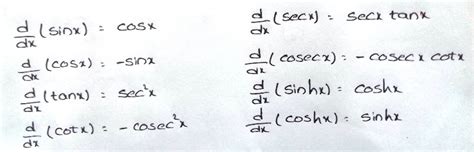 d/dx (sinx) = cosx
d/dx (cosx) = -sinx
d/dx (tanx) = sec²x
d/dx (cotx) = - cosec²x
d/dx (secx) = secx tanx
d/dx (cosecx) = - cosecx cotx
d/dx (sinhx) = coshx
d/dx (coshx) = sinhx